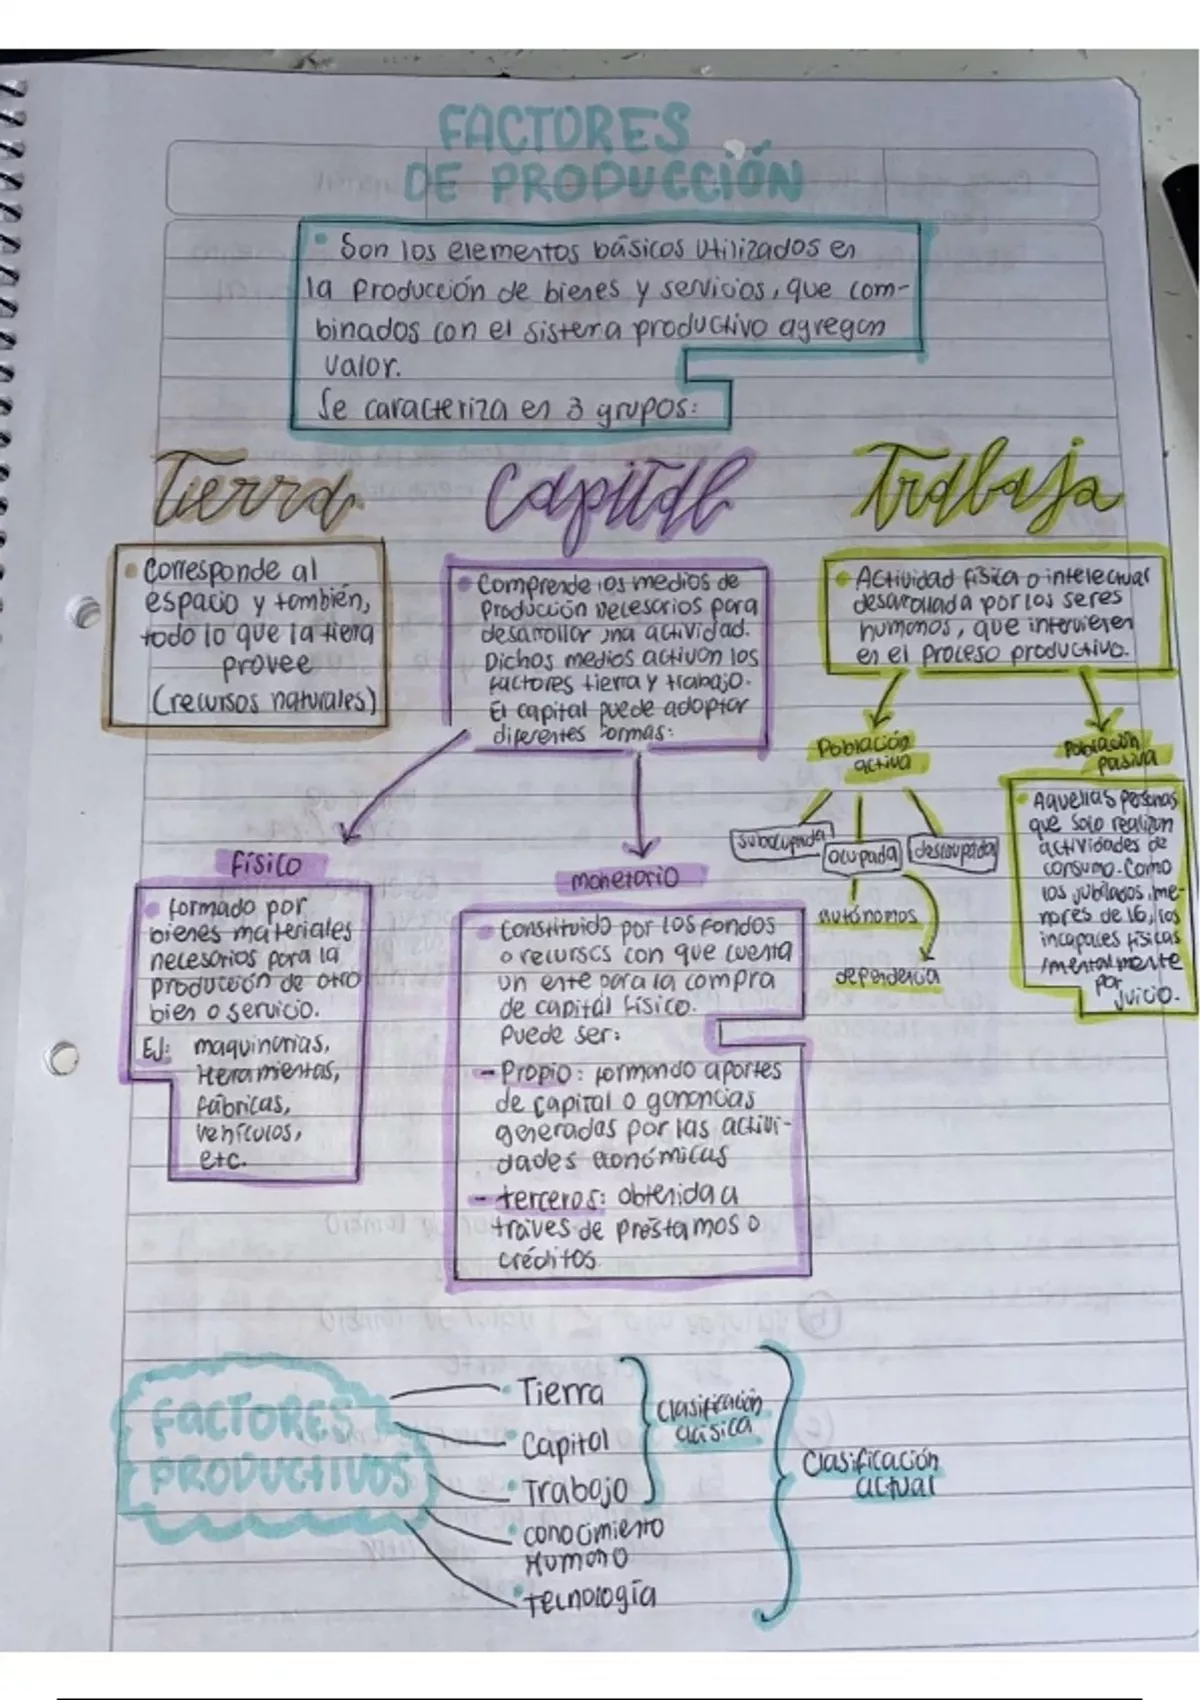 FACTORES
DE PRODUCCIÓN
Son los elementos básicos utilizados en
la producción de bienes y servicios, que com-
binados con el sistema productivo agregan
valor.
Se caracteriza en 3 grupos:
Tierra
Corresponde al
espacio y también,
todo lo que la tierra
provee
(recursos naturales)
Capital
Comprende los medios de
producción necesarios para
desarrollar una actividad.
Dichos medios activan los
factores tierra y trabajo.
El capital puede adoptar
diferentes formas:
Físico
formado por
bienes materiales
necesarios para la
producción de otro
bien o servicio.
EJ: maquinarias,
Herramientas,
fábricas,
vehículos,
etc.
monetario
Constituido por los fondos
o recursos con que cuenta
un ente para la compra
de capital físico.
puede ser:
- Propio: formando aportes
de capital o ganancias
generadas por las activi-
dades económicas
- terceros: obtenida a
traves de préstamos o
créditos.
Trabajo
Actividad física o intelectual
desarrollada por los seres
humanos, que intervienen
en el proceso productivo.
Población
activa
subocupada
ocupada
desocupada
autónomos
dependencia
Población
pasiva
Aquellas personas
que solo realizan
actividades de
consumo. Como
los jubilados, me-
nores de 16, los
incapaces físicas
/mentalmente
por
juicio.
FACTORES
PRODUCTIVOS
Tierra
Capital
Trabajo
conocimiento
Humano
tecnología
Clasificación
clásica
Clasificación
actual